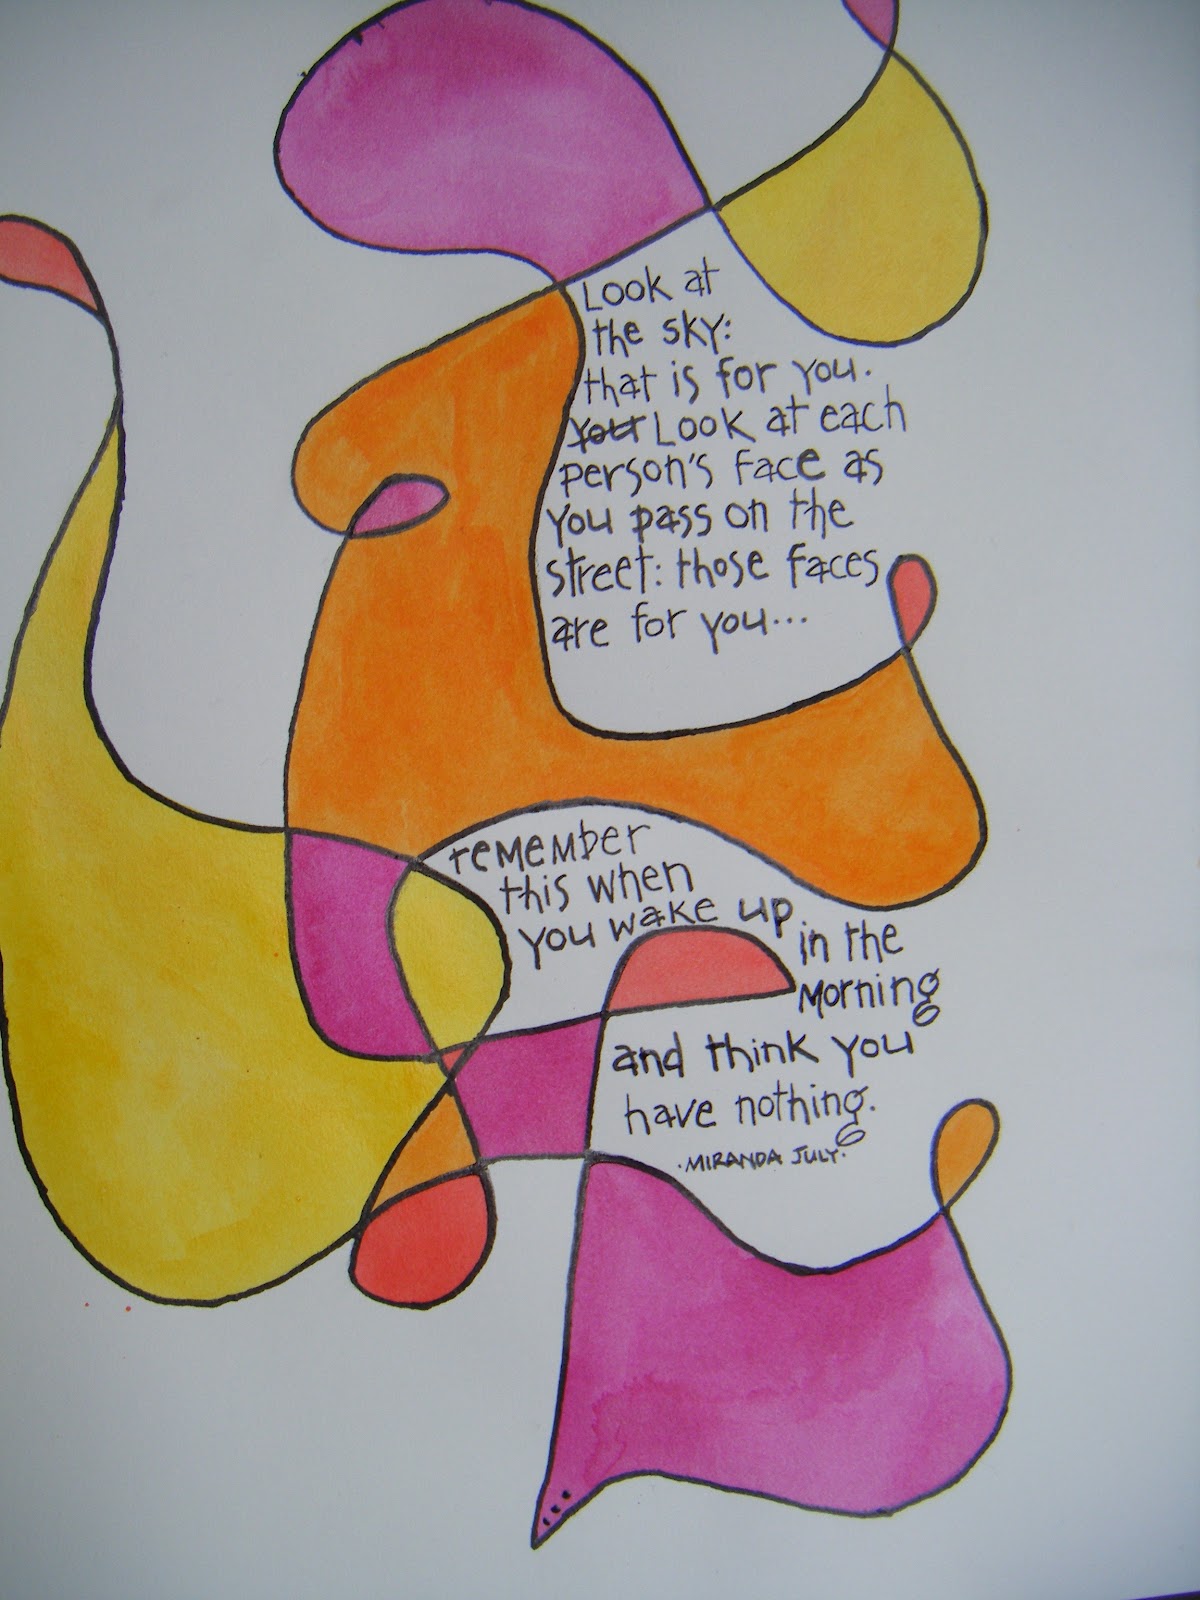 Look at
the sky:
that is for you.
Your Look at each
person's face as
you pass on the
street: those faces
are for you...
remember
this when
you wake up
in the
morning
and think you
have nothing.
·MIRANDA JULY·